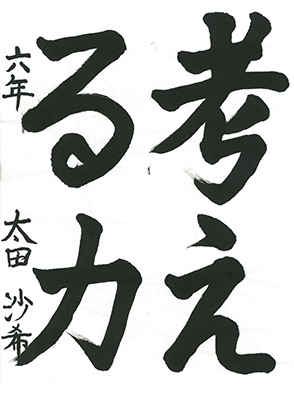 考え
る力
六年 太田沙希